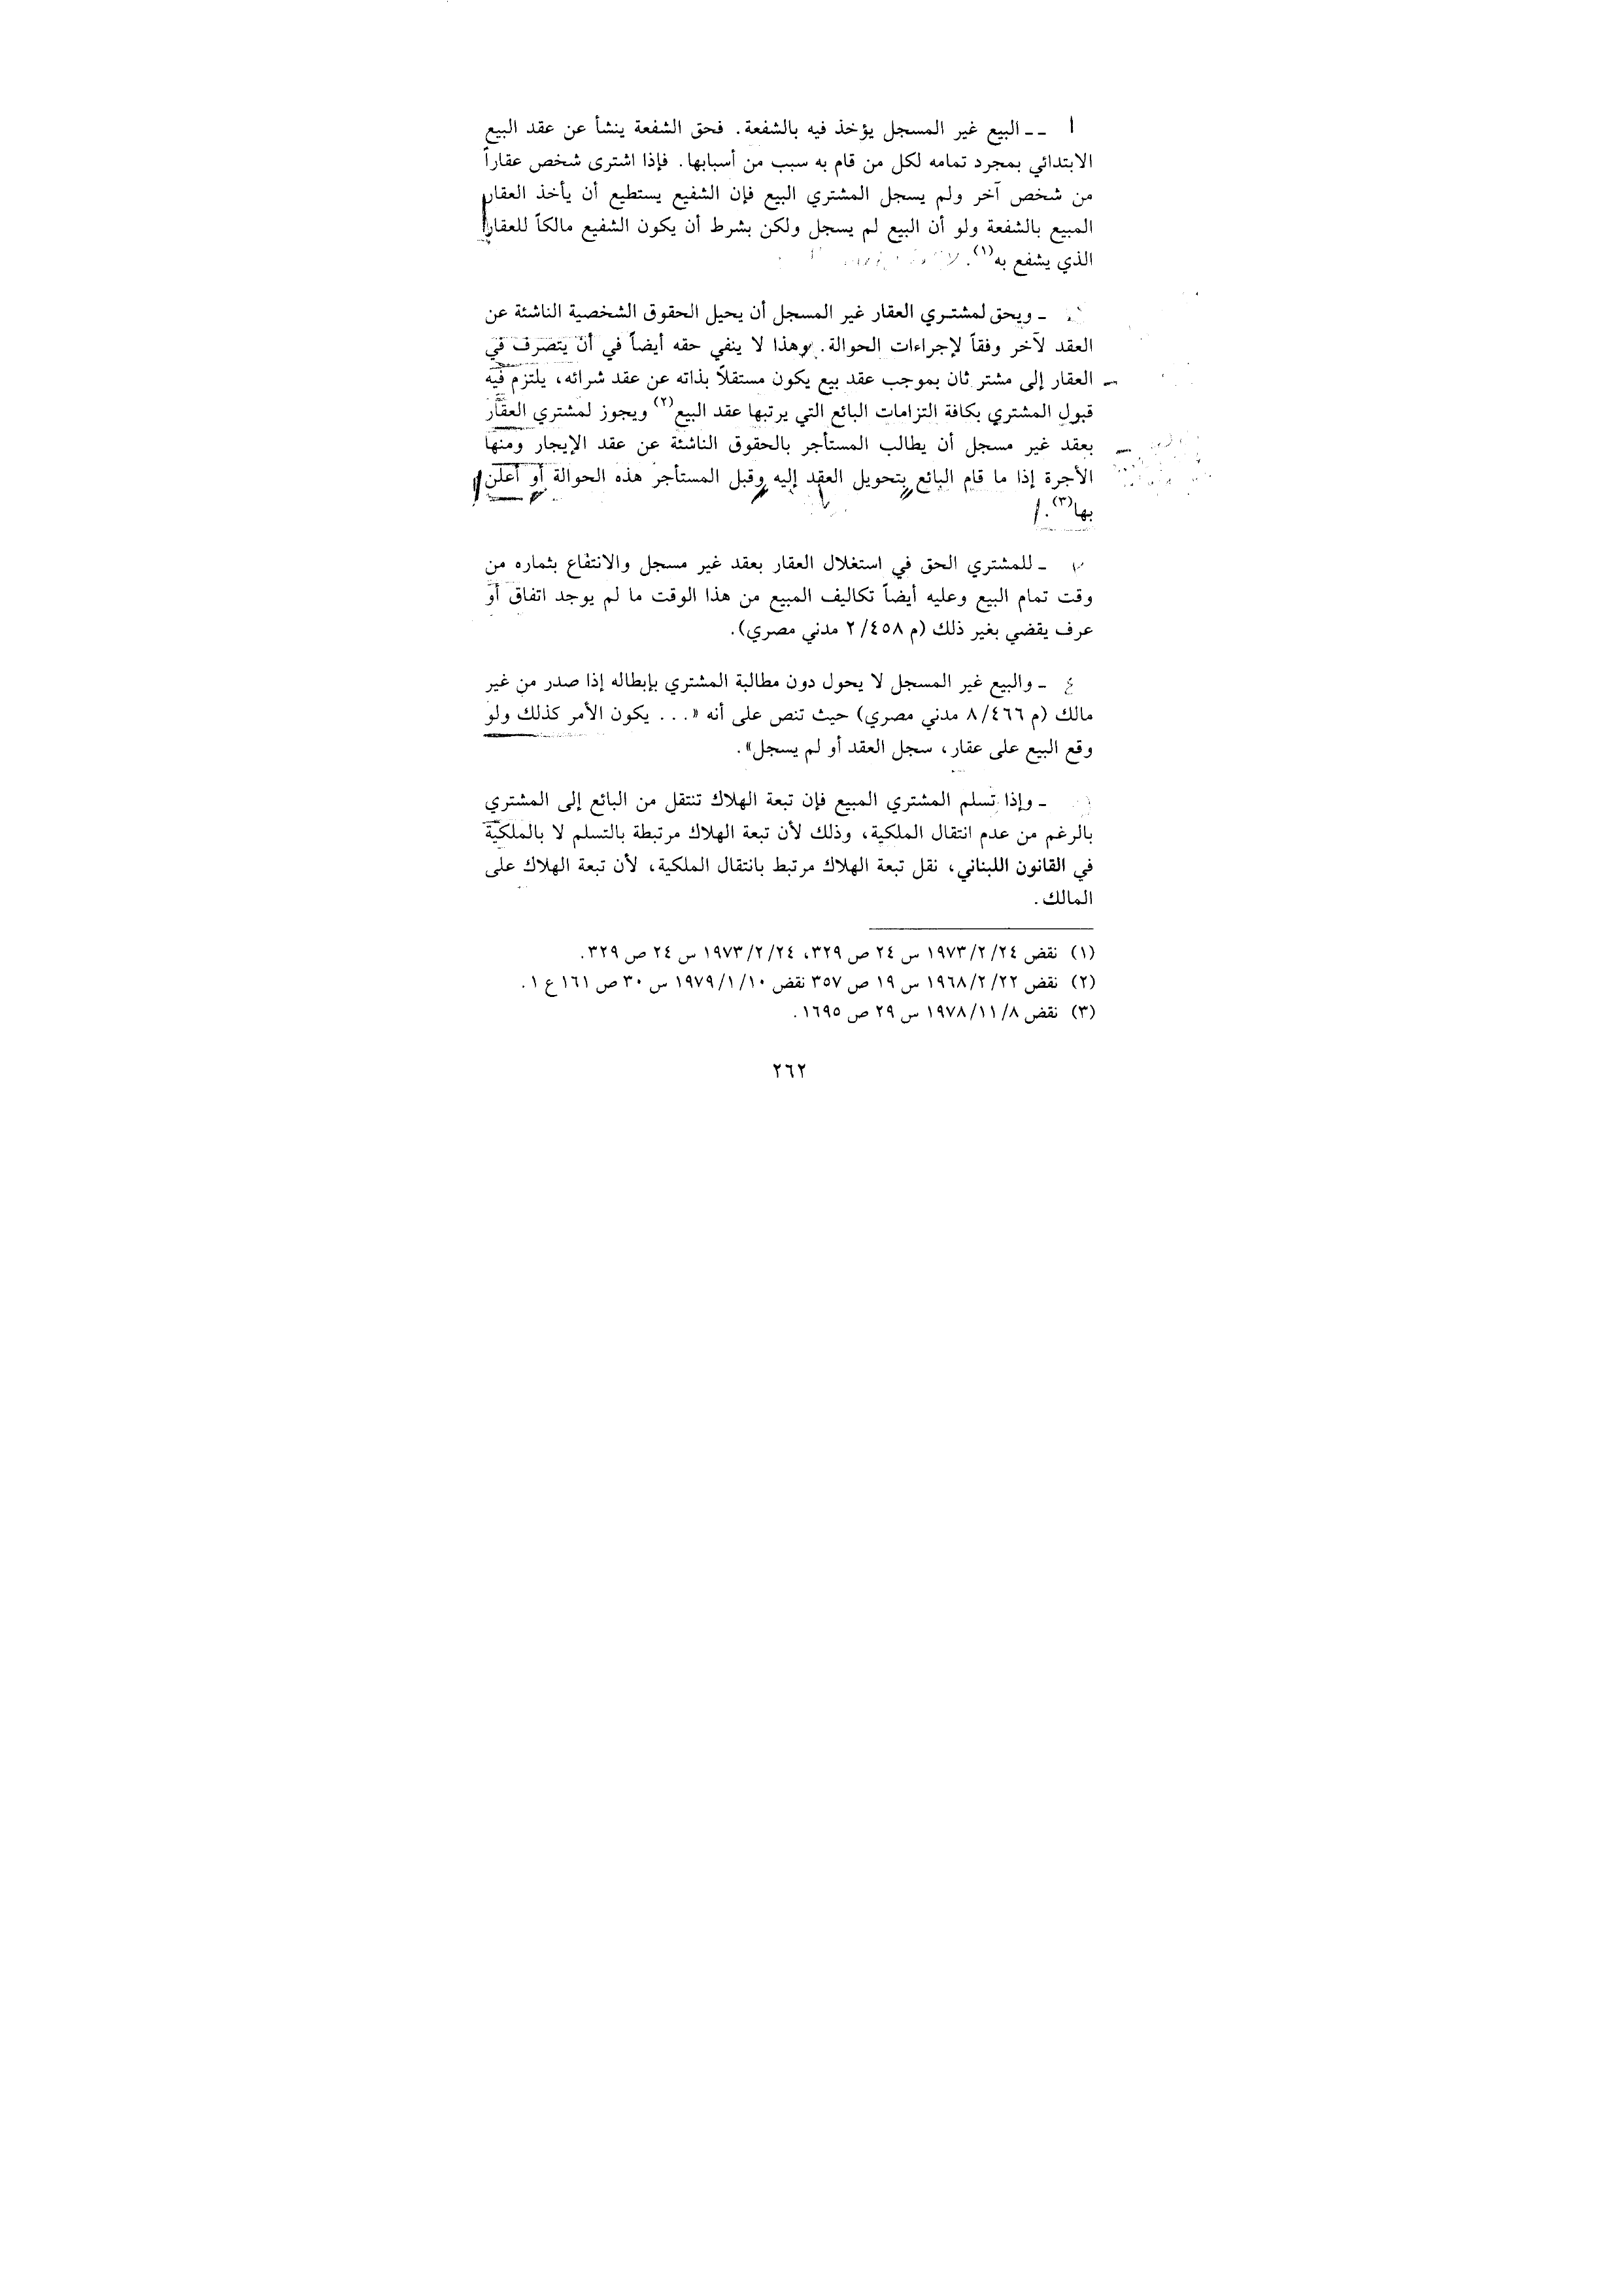 ا -- البيع غير المسجل يؤخذ فيه بالشفعة. فحق الشفعة ينشأ عن عقد البيع
الابتدائي بمجرد تمامه لكل من قام به سبب من أسبابها. فإذا اشترى شخص عقاراً
من شخص آخر ولم يسجل المشتري البيع فإن الشفيع يستطيع أن يأخذ العقار
المبيع بالشفعة ولو أن البيع لم يسجل ولكن بشرط أن يكون الشفيع مالكاً للعقار
الذي يشفع به(١).
- ويحق لمشتري العقار غير المسجل أن يحيل الحقوق الشخصية الناشئة عن
العقد لآخر وفقاً لإجراءات الحوالة. وهذا لا ينفي حقه أيضاً في أن يتصرف في
العقار إلى مشتر ثان بموجب عقد بيع يكون مستقلاً بذاته عن عقد شرائه، يلتزم فيه
قبول المشتري بكافة التزامات البائع التي يرتبها عقد البيع(٢) ويجوز لمشتري العقار
بعقد غير مسجل أن يطالب المستأجر بالحقوق الناشئة عن عقد الإيجار ومنها
الأجرة إذا ما قام البائع بتحويل العقد إليه وقبل المستأجر هذه الحوالة أو أعلن
بها(٣).
- للمشتري الحق في استغلال العقار بعقد غير مسجل والانتفاع بثماره من
وقت تمام البيع وعليه أيضاً تكاليف المبيع من هذا الوقت ما لم يوجد اتفاق أو
عرف يقضي بغير ذلك (م ٢/٤٥٨ مدني مصري).
٤ - والبيع غير المسجل لا يحول دون مطالبة المشتري بإبطاله إذا صدر من غير
مالك (م ٨/٤٦٦ مدني مصري) حيث تنص على أنه «... يكون الأمر كذلك ولو
وقع البيع على عقار، سجل العقد أو لم يسجل».
- وإذا تسلم المشتري المبيع فإن تبعة الهلاك تنتقل من البائع إلى المشتري
بالرغم من عدم انتقال الملكية، وذلك لأن تبعة الهلاك مرتبطة بالتسلم لا بالملكية
في القانون اللبناني، نقل تبعة الهلاك مرتبط بانتقال الملكية، لأن تبعة الهلاك على
المالك.
(١) نقض ١٩٧٣/٢/٢٤ س ٢٤ ص ٣٢٩، ١٩٧٣/٢/٢٤ س ٢٤ ص ٣٢٩.
(٢) نقض ١٩٦٨/٢/٢٢ س ١٩ ص ٣٥٧ نقض ١٩٧٩/١/١٠ س ٣٠ ص ١٦١ ع ١.
(٣) نقض ١٩٧٨/١١/٨ س ٢٩ ص ١٦٩٥.
٢٦٢